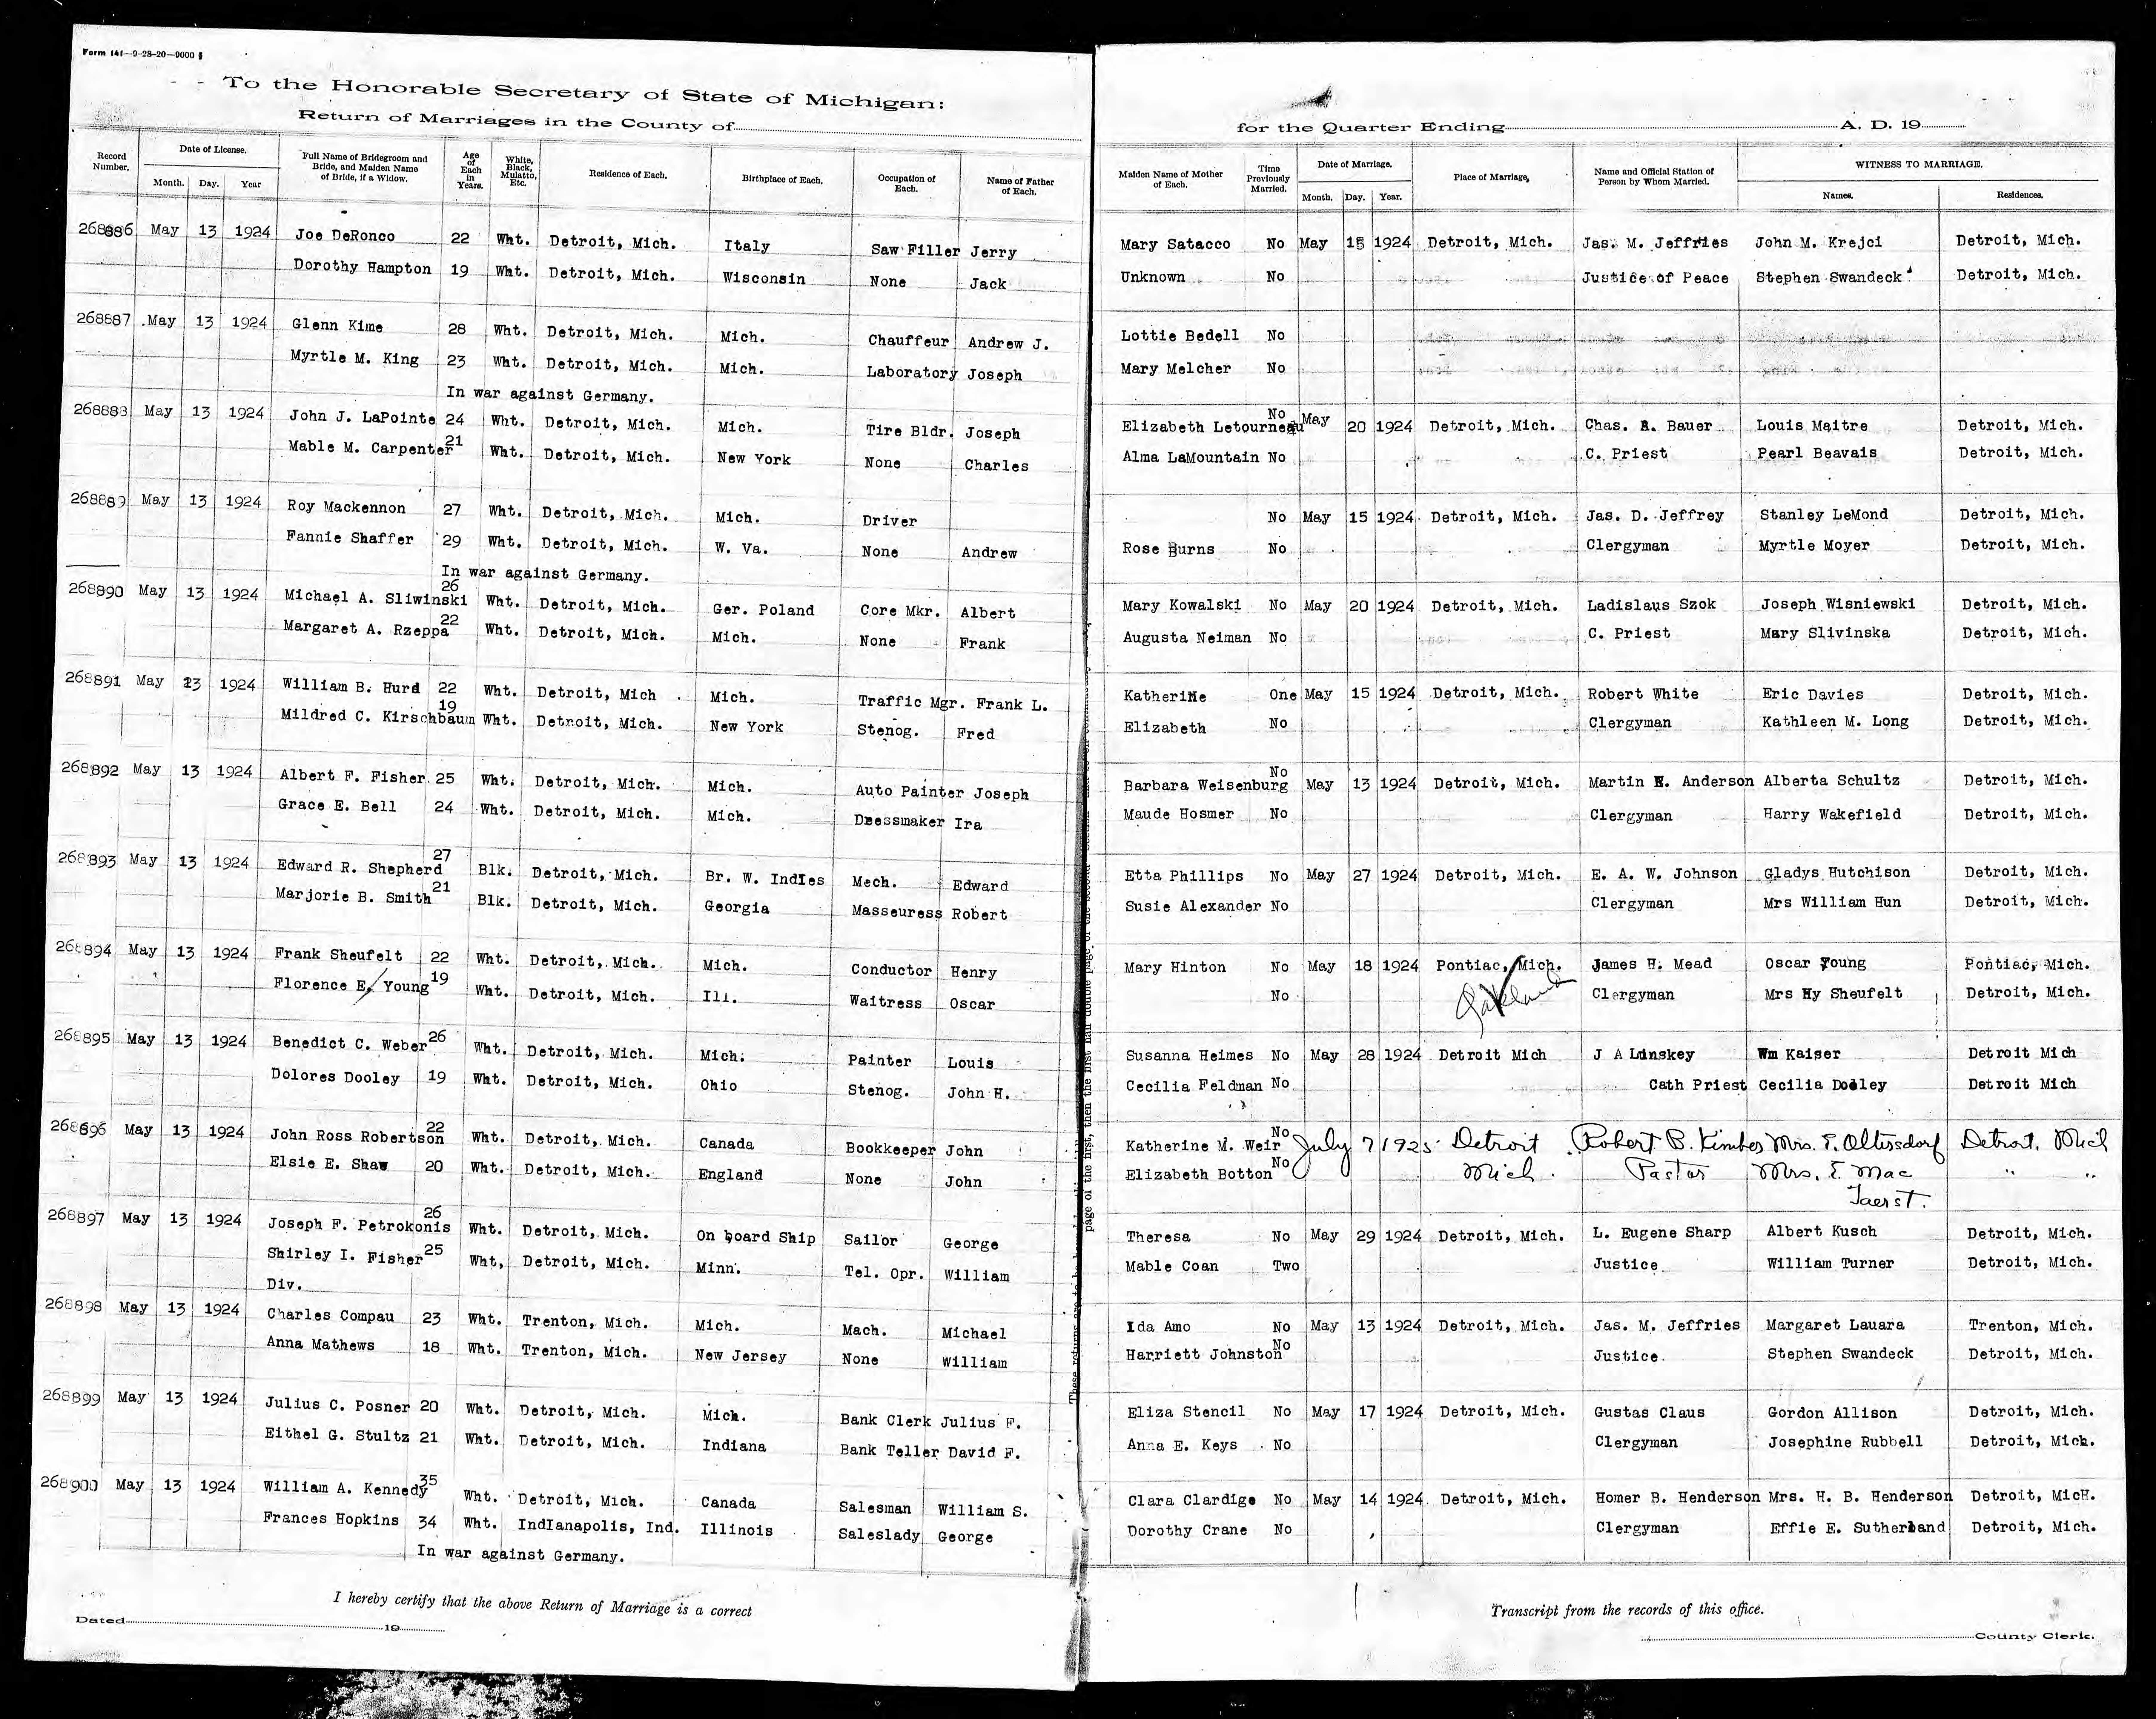 Form 141—9-28-20—9000
To the Honorable Secretary of State of Michigan:
Return of Marriages in the County of
for the Quarter Ending A. D. 19
Record Number. Date of License. Month. Day. Year Full Name of Bridegroom and Bride, and Maiden Name of Bride, if a Widow. Age of Each in Years. White, Black, Mulatto, Etc. Residence of Each. Birthplace of Each. Occupation of Each. Name of Father of Each.
Maiden Name of Mother of Each. Time Previously Married. Date of Marriage. Month. Day. Year. Place of Marriage, Name and Official Station of Person by Whom Married. WITNESS TO MARRIAGE. Names. Residences.
268886 May 13 1924 Joe DeRonco 22 Wht. Detroit, Mich. Italy Saw Filler Jerry Mary Satacco No May 15 1924 Detroit, Mich. Jas. M. Jeffries John M. Krejci Detroit, Mich.
Dorothy Hampton 19 Wht. Detroit, Mich. Wisconsin None Jack Unknown No Justice of Peace Stephen Swandeck Detroit, Mich.
268887 May 13 1924 Glenn Kime 28 Wht. Detroit, Mich. Mich. Chauffeur Andrew J. Lottie Bedell No
Myrtle M. King 23 Wht. Detroit, Mich. Mich. Laboratory Joseph Mary Melcher No
In war against Germany.
268888 May 13 1924 John J. LaPointe 24 Wht. Detroit, Mich. Mich. Tire Bldr. Joseph Elizabeth Letourneau No May 20 1924 Detroit, Mich. Chas. A. Bauer Louis Maitre Detroit, Mich.
Mable M. Carpenter 21 Wht. Detroit, Mich. New York None Charles Alma LaMountain No C. Priest Pearl Beavais Detroit, Mich.
268889 May 13 1924 Roy Mackennon 27 Wht. Detroit, Mich. Mich. Driver No May 15 1924 Detroit, Mich. Jas. D. Jeffrey Stanley LeMond Detroit, Mich.
Fannie Shaffer 29 Wht. Detroit, Mich. W. Va. None Andrew Rose Burns No Clergyman Myrtle Moyer Detroit, Mich.
In war against Germany.
268890 May 13 1924 Michael A. Sliwinski 26 Wht. Detroit, Mich. Ger. Poland Core Mkr. Albert Mary Kowalski No May 20 1924 Detroit, Mich. Ladislaus Szok Joseph Wisniewski Detroit, Mich.
Margaret A. Rzeppa 22 Wht. Detroit, Mich. Mich. None Frank Augusta Neiman No C. Priest Mary Slivinska Detroit, Mich.
268891 May 13 1924 William B. Hurd 22 Wht. Detroit, Mich. Mich. Traffic Mgr. Frank L. Katherine One May 15 1924 Detroit, Mich. Robert White Eric Davies Detroit, Mich.
Mildred C. Kirschbaum 19 Wht. Detroit, Mich. New York Stenog. Fred Elizabeth No Clergyman Kathleen M. Long Detroit, Mich.
268892 May 13 1924 Albert F. Fisher 25 Wht. Detroit, Mich. Mich. Auto Painter Joseph Barbara Weisenburg No May 13 1924 Detroit, Mich. Martin E. Anderson Alberta Schultz Detroit, Mich.
Grace E. Bell 24 Wht. Detroit, Mich. Mich. Dressmaker Ira Maude Hosmer No Clergyman Harry Wakefield Detroit, Mich.
268893 May 13 1924 Edward R. Shepherd 27 Blk. Detroit, Mich. Br. W. IndIes Mech. Edward Etta Phillips No May 27 1924 Detroit, Mich. E. A. W. Johnson Gladys Hutchison Detroit, Mich.
Marjorie B. Smith 21 Blk. Detroit, Mich. Georgia Masseuress Robert Susie Alexander No Clergyman Mrs William Hun Detroit, Mich.
268894 May 13 1924 Frank Sheufelt 22 Wht. Detroit, Mich. Mich. Conductor Henry Mary Hinton No May 18 1924 Pontiac, Mich. James H. Mead Oscar Young Pontiac, Mich.
Florence E. Young 19 Wht. Detroit, Mich. Ill. Waitress Oscar No Oakland Clergyman Mrs Hy Sheufelt Detroit, Mich.
268895 May 13 1924 Benedict C. Weber 26 Wht. Detroit, Mich. Mich. Painter Louis Susanna Heimes No May 28 1924 Detroit Mich J A Linskey Wm Kaiser Detroit Mich
Dolores Dooley 19 Wht. Detroit, Mich. Ohio Stenog. John H. Cecilia Feldman No Cath Priest Cecilia Dooley Detroit Mich
268896 May 13 1924 John Ross Robertson 22 Wht. Detroit, Mich. Canada Bookkeeper John Katherine M. Weir No July 7 1925 Detroit Robert B. Kimber Mrs. F. Detroit, Mich
Elsie E. Shaw 20 Wht. Detroit, Mich. England None John Elizabeth Botton No Mich. Pastor Mrs. E. Mac " "
268897 May 13 1924 Joseph F. Petrokonis 26 Wht. Detroit, Mich. On board Ship Sailor George Theresa No May 29 1924 Detroit, Mich. L. Eugene Sharp Albert Kusch Detroit, Mich.
Shirley I. Fisher 25 Wht, Detroit, Mich. Minn. Tel. Opr. William Mable Coan Two Justice William Turner Detroit, Mich.
Div.
268898 May 13 1924 Charles Compau 23 Wht. Trenton, Mich. Mich. Mach. Michael Ida Amo No May 13 1924 Detroit, Mich. Jas. M. Jeffries Margaret Lauara Trenton, Mich.
Anna Mathews 18 Wht. Trenton, Mich. New Jersey None William Harriett Johnston No Justice. Stephen Swandeck Detroit, Mich.
268899 May 13 1924 Julius C. Posner 20 Wht. Detroit, Mich. Mich. Bank Clerk Julius F. Eliza Stencil No May 17 1924 Detroit, Mich. Gustas Claus Gordon Allison Detroit, Mich.
Eithel G. Stultz 21 Wht. Detroit, Mich. Indiana Bank Teller David F. Anna E. Keys No Clergyman Josephine Rubbell Detroit, Mich.
268900 May 13 1924 William A. Kennedy 35 Wht. Detroit, Mich. Canada Salesman William S. Clara Clardige No May 14 1924 Detroit, Mich. Homer B. Henderson Mrs. H. B. Henderson Detroit, MicH.
Frances Hopkins 34 Wht. IndIanapolis, Ind. Illinois Saleslady George Dorothy Crane No Clergyman Effie E. Sutherland Detroit, Mich.
In war against Germany.
I hereby certify that the above Return of Marriage is a correct
Transcript from the records of this office.
Dated 19
County Clerk.